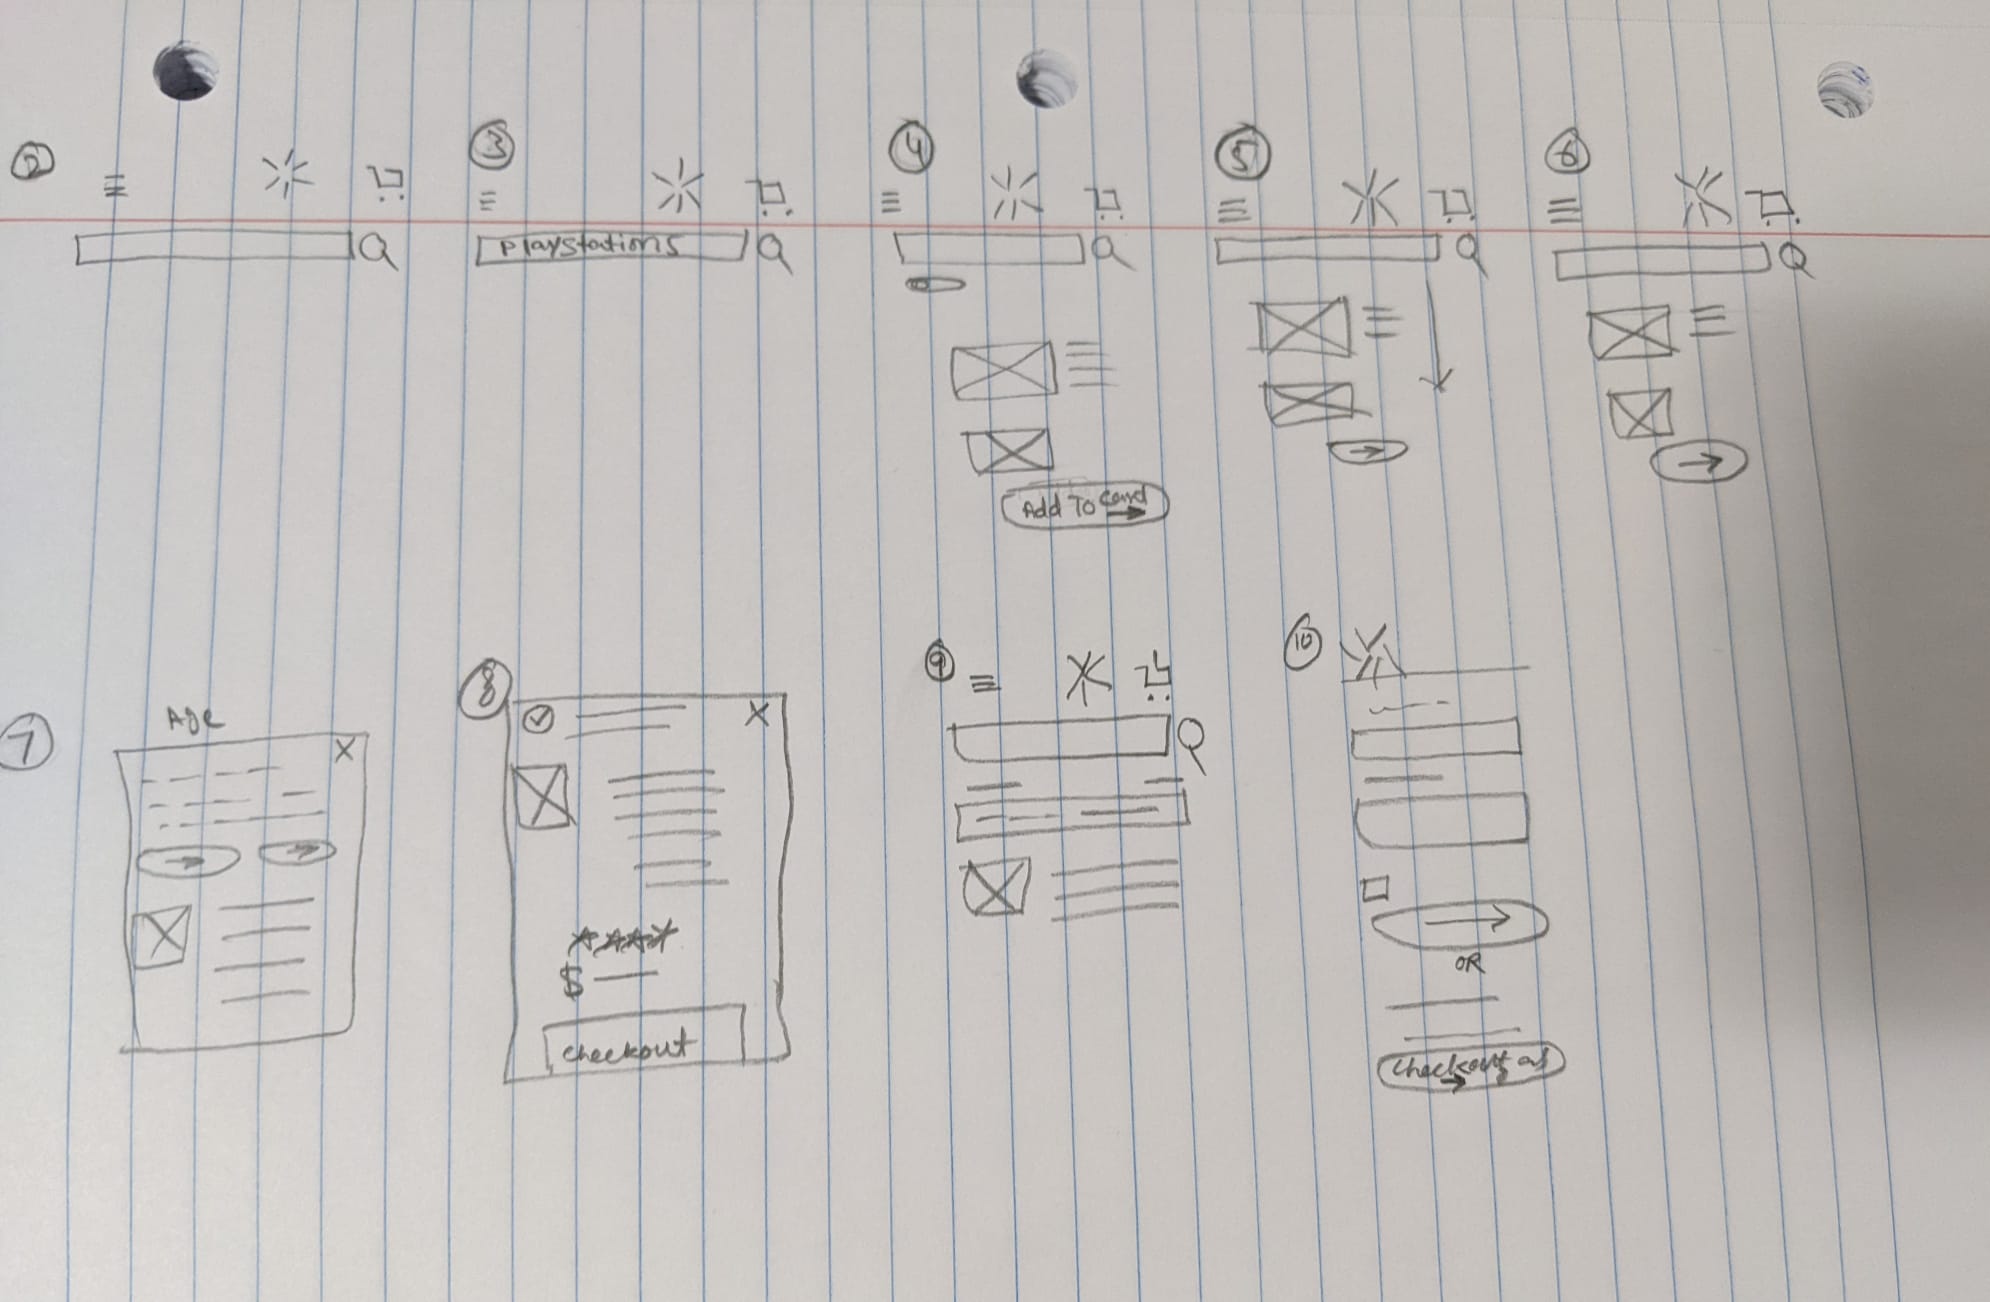 2
3
4
5
6
playstations
Add To Card
7
Age
8
$
checkout
9
10
OR
checkout as